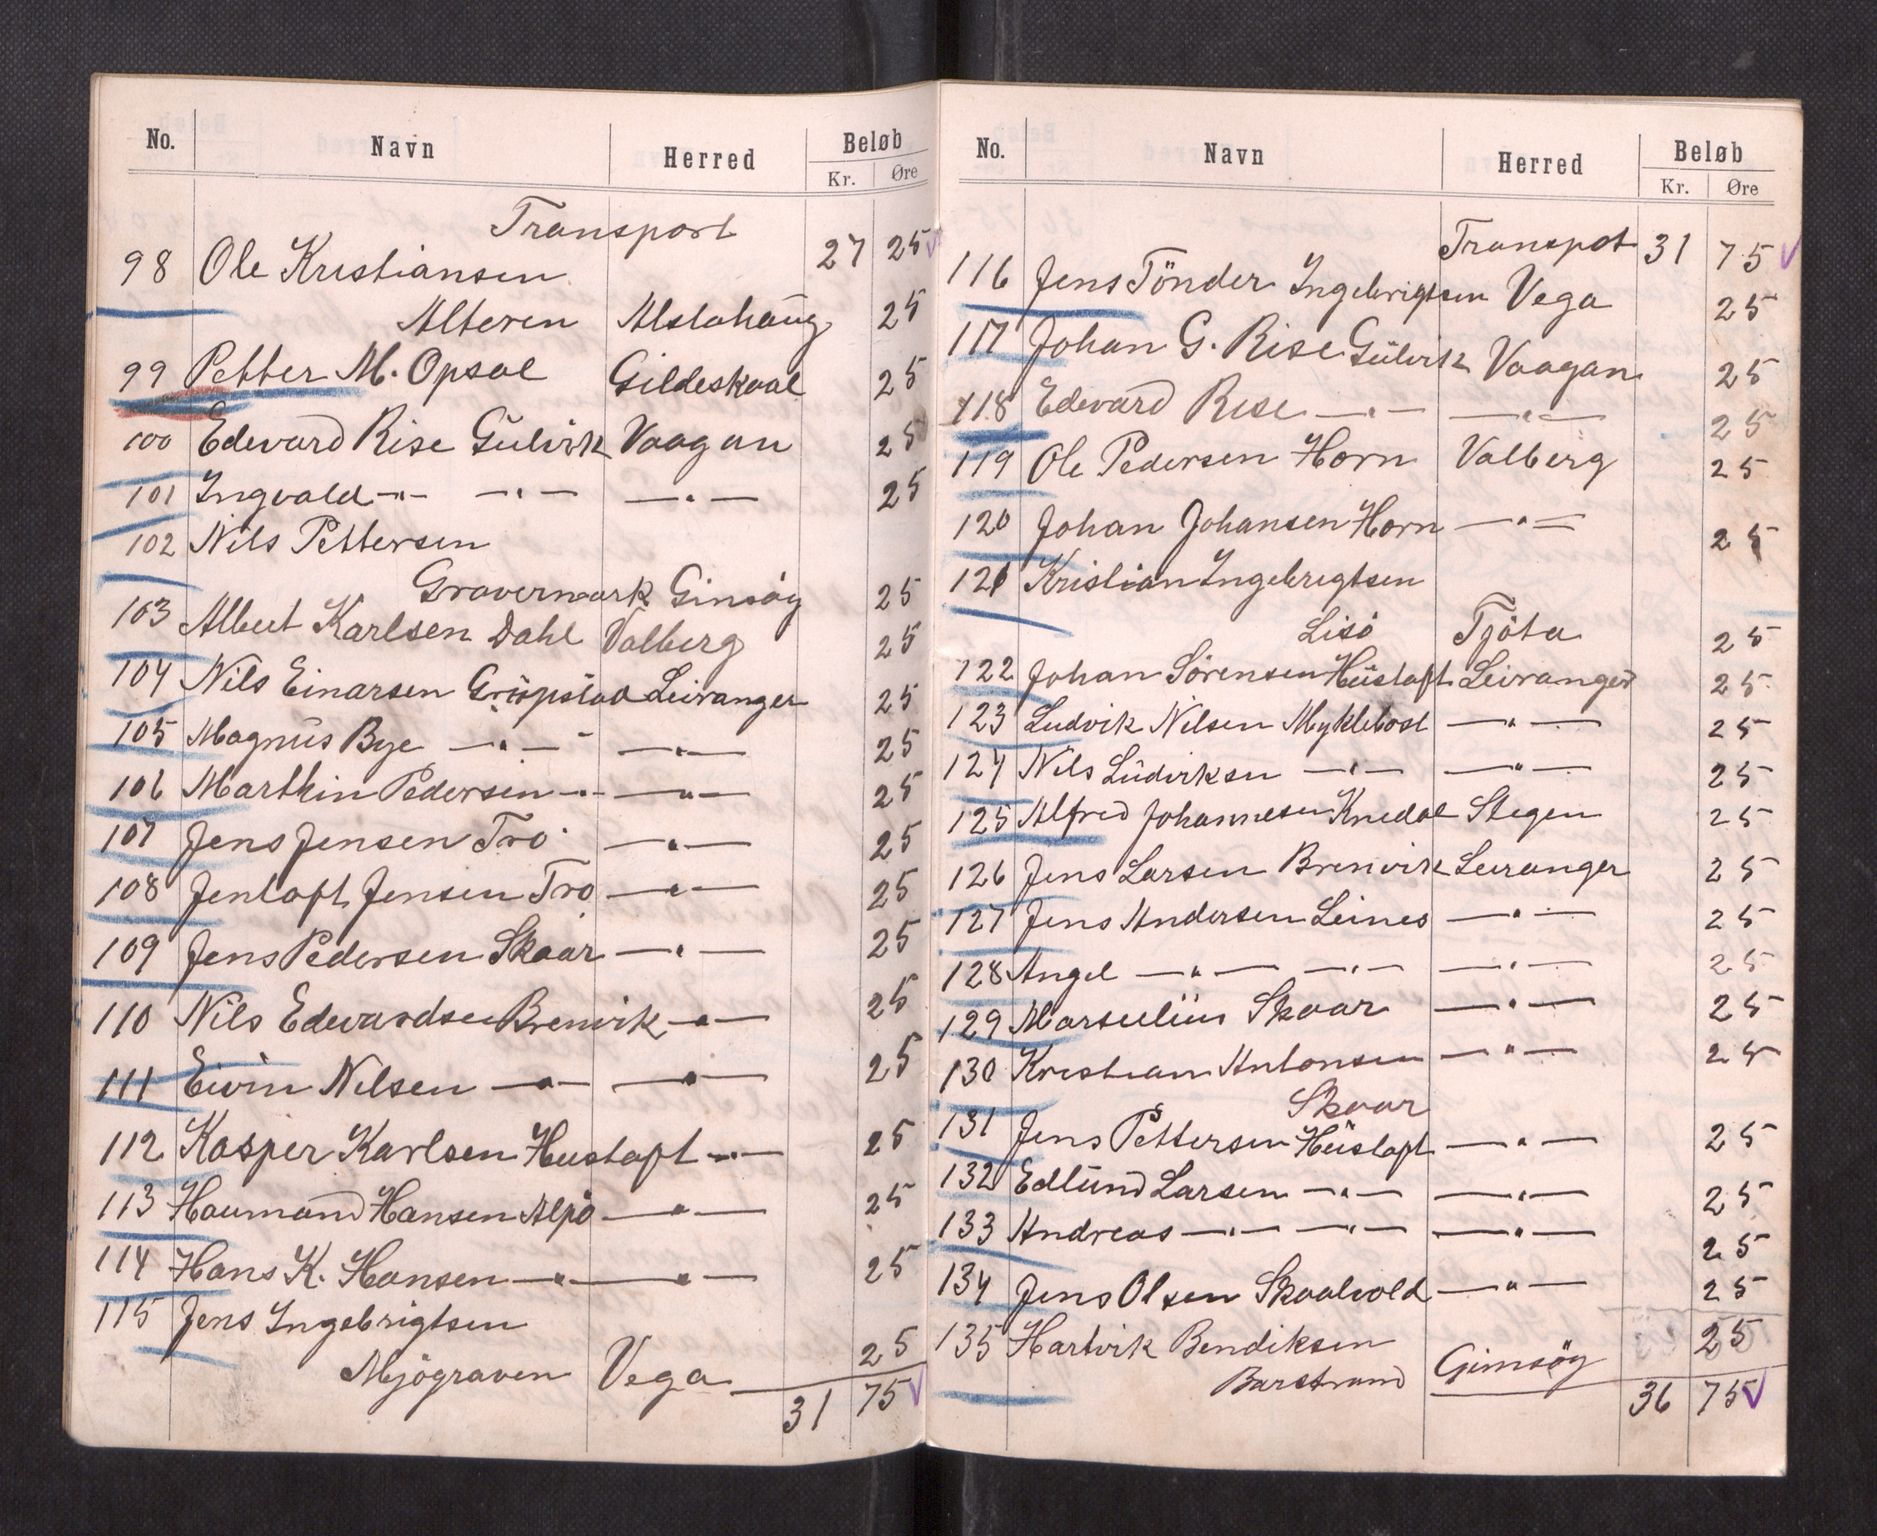 No. Navn Herred Beløb
Kr. Øre
Transport 27 25
98 Ole Kristiansen
Alteren Alstahaüg 25
99 Petter M. Opsal Gildeskaal 25
100 Edevard Rise Gülvik Vaagan 25
101 Ingvald -"- -"- -"- 25
102 Nils Pettersen
Gravermark Gimsöy 25
103 Albert Karlsen Dahl Valberg 25
104 Nils Einarsen Grüpstad Leiranger 25
105 Magnüs Bye -"- -"- 25
106 Marthin Pedersen -"- -"- 25
107 Jens Jensen Tro -"- 25
108 Jentoft Jensen Tro -"- 25
109 Jens Pedersen Skaar -"- 25
110 Nils Edevardsen Brenvik -"- 25
111 Eivin Nilsen -"- -"- 25
112 Kasper Karlsen Hustoft -"- 25
113 Haumand Hansen Alpö -"- 25
114 Hans K. Hansen -"- -"- 25
115 Jens Ingebrigtsen
Mjögraven Vega 25
31 75
No. Navn Herred Beløb
Kr. Øre
Transpot 31 75
116 Jens Tönder Ingebrigtsen Vega 25
117 Johan G. Rise Gülvik Vaagan 25
118 Edevard Rise -"- -"- 25
119 Ole Pedersen Horn Valberg 25
120 Johan Johansen Horn -"- 25
121 Kristian Ingebrigtsen
Lisö Tjöta 25
122 Johan Sörensen Hüstoft Leiranger 25
123 Ludvik Nilsen Myklebost -"- 25
124 Nils Lüdviksen -"- -"- 25
125 Alfred Johannesen Knedal Stegen 25
126 Jens Larsen Brenvik Leiranger 25
127 Jens Andersen Leines -"- 25
128 Angel -"- -"- -"- 25
129 Marseliüs Skaar -"- 25
130 Kristian Antonsen -"- 25
Skaar
131 Jens Pettersen Hüstoft -"- 25
132 Edlünd Larsen -"- -"- 25
133 Andreas -"- -"- -"- 25
134 Jens Olsen Skaalvold -"- 25
135 Hartvik Bendiksen 25
Barstrand Gimsöy
36 75